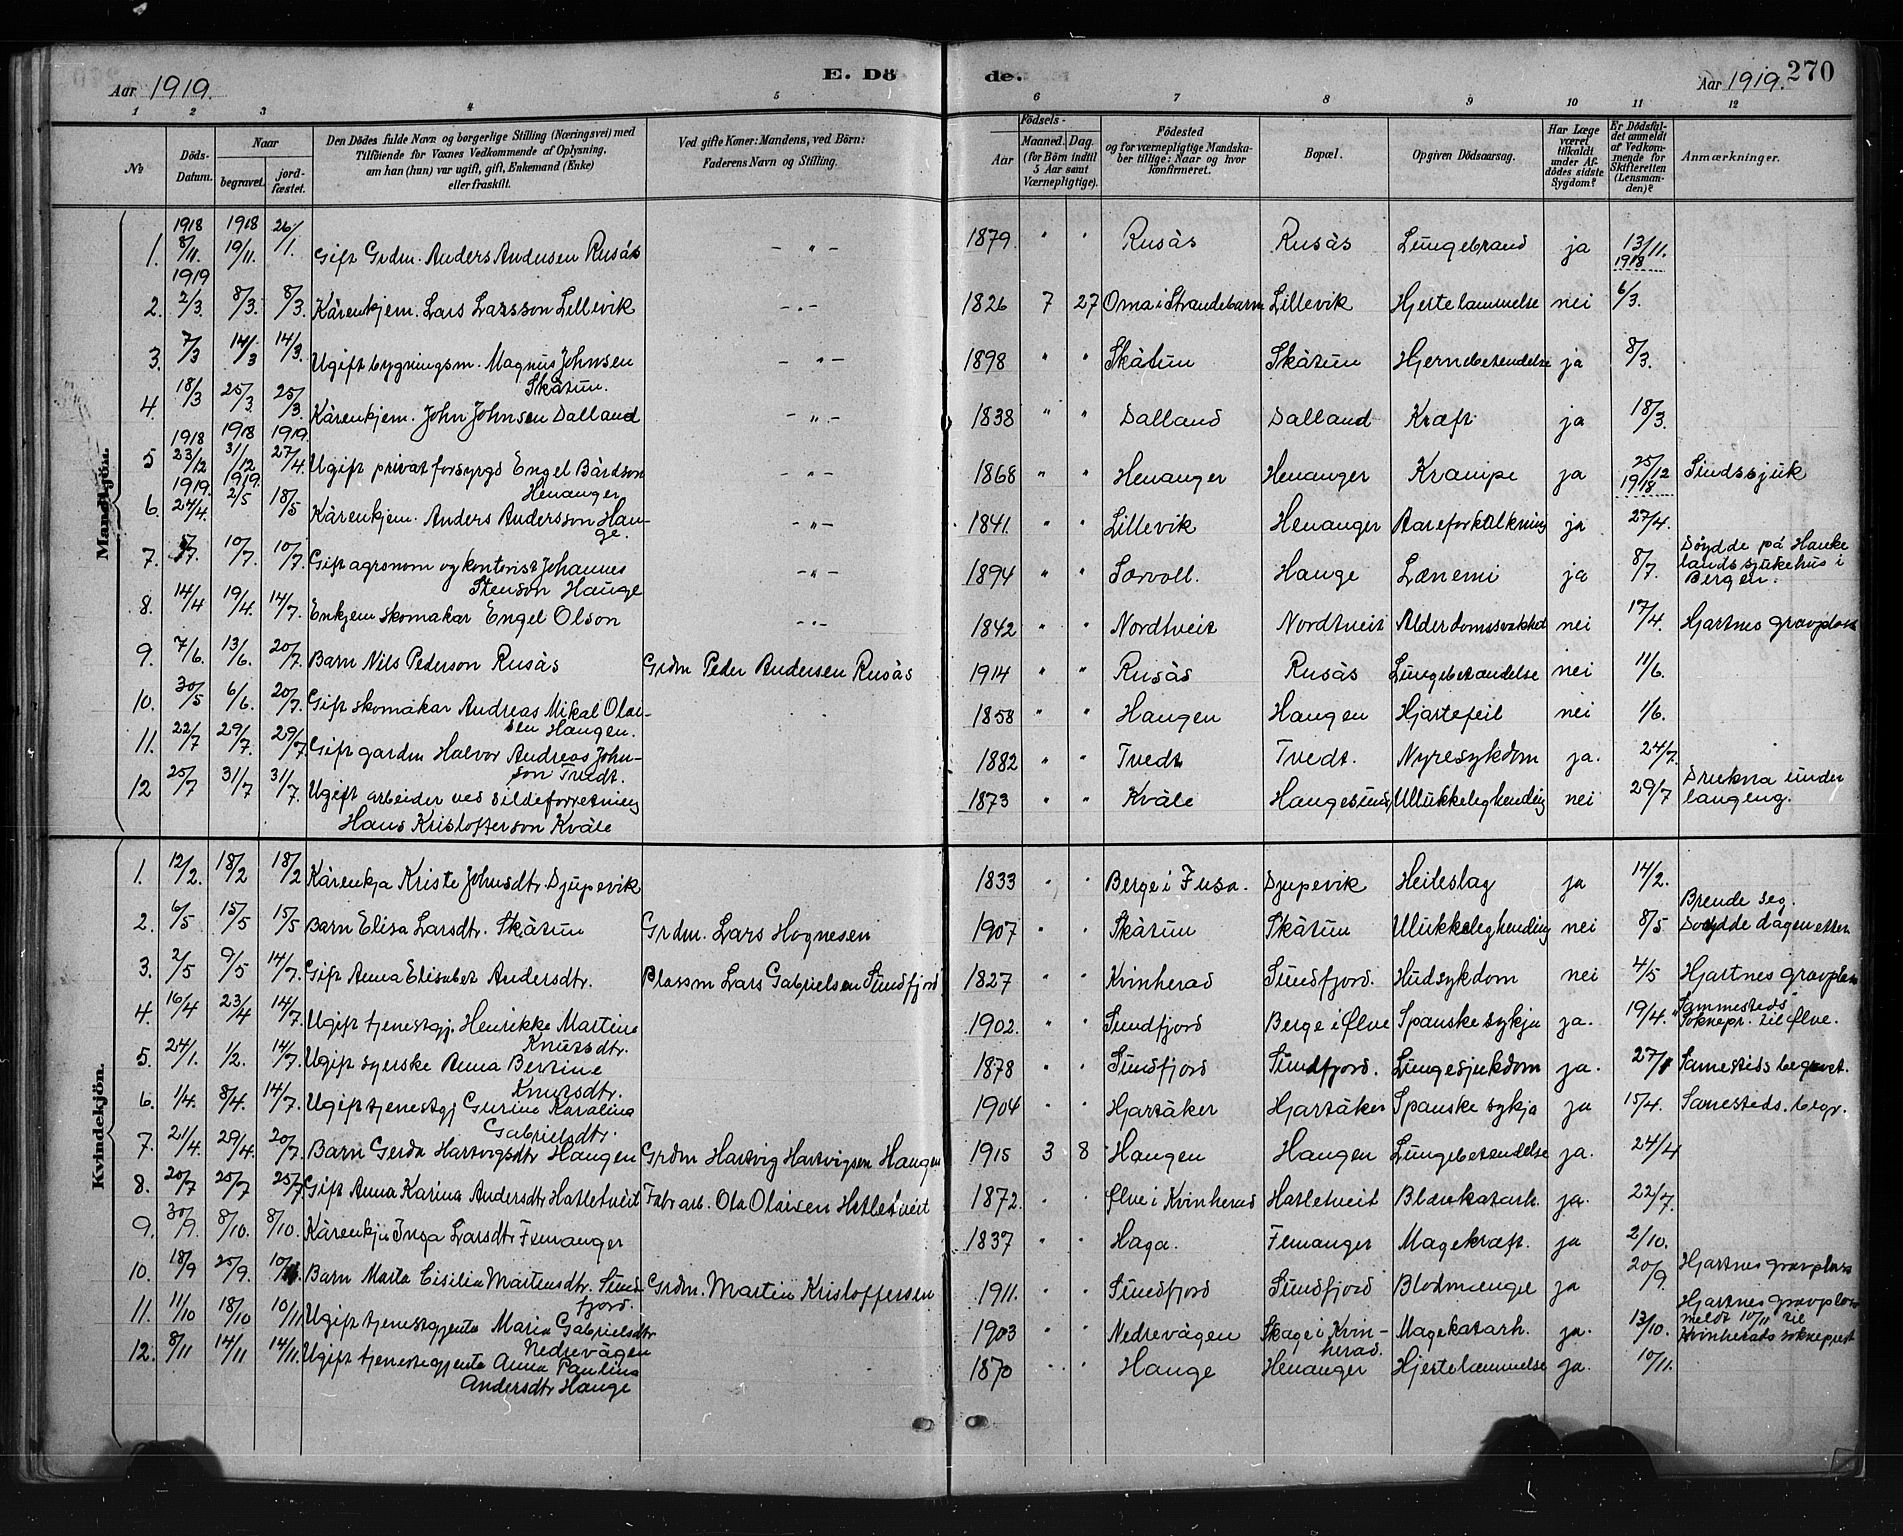 Aar 1919. E. Dö de. Aar 1919. 270
1 2 3 4 5 6 7 8 9 10 11 12
№ Döds-Datum. Naar begravet. jordfæstet. Den Dödes fulde Navn og borgerlige Stilling (Næringsvei) med Tilföiende for Voxnes Vedkommende af Oplysning, om han (hun) var ugift, gift, Enkemand (Enke) eller fraskilt. Ved gifte Koner: Mandens, ved Börn: Faderens Navn og Stilling. Födsels- Aar Maaned. Dag. (for Börn indtil 5 Aar samt Værnepligtige). Födested og for værnepligtige Mandskaber tillige: Naar og hvor konfirmeret. Bopæl. Opgiven Dödsaarsag. Har Læge været tilkaldt under Afdödes sidste Sygdom? Er Dödsfaldet anmeldt af Vedkommende for Skifteretten (Lensmanden)? Anmærkninger.
Mandkjön.
1. 1918 8/11. 1918 19/11. 26/1. Gift Grdm. Anders Andersen Rusås - " - 1879. " " Rusås Rusås Lungebrand ja 13/11. 1918
2. 1919 2/3. 8/3. 8/3. Kårenkjem. Lars Larsson Lillevik - " - 1826 7 27 Oma i Strandebarm Lillevik Hjertelammelse nei 6/3.
3. 7/3 14/3 14/3. Ugift bygningsm. Magnus Johnsen Skåtun. - " - 1898 " " Skåtun Skåtun Hjernebetendelse ja 8/3.
4. 18/3 25/3. 25/3. Kårenkjem. John Johnsen Dalland - " - 1838 " " Dalland Dalland Kræft ja 18/3.
5 1918 23/12 1918 31/12 1919. 27/4. Ugift privat forsyrgd Engel Bårdson Henanger - " - 1868 " " Henanger Henanger Krampe ja 25/12 1918 Sindssjuk
6. 1919. 24/4. 1919. 2/5 18/5 Kårenkjem. Anders Andersson Hauge. - " - 1841. " " Lillevik Henanger Aareforkalkning ja 27/4.
7. 5/7. 10/7. 10/7. Gift agronom og kontorist Johannes Stenson Hauge - " - 1894 " " Sørvoll. Hauge Lænemi ja 8/7. Döydde på Haukelands sjukehus i Bergen.
8. 14/4 19/4. 14/7. Enkjem skomakar Engel Olson - " - 1842 " " Nordtveit Nordtveit Alderdomssvakhed nei 17/4. Hjartnes gravplass
9. 7/6. 13/6. 20/7. Barn Nils Pederson Rusås Grdm Peder Andersen Rusås 1914 " " Rusås Rusås Lungebetændelse nei 11/6.
10. 30/5 6/6. 20/7. Gift skomakar Andreas Mikal Olaisen Haugen. 1858 " " Haugen Haugen Hjartefeil nei 1/6.
11. 22/7 29/7. 29/7 Gift gardm Halvor Andreas Johnson Tvedt. 1882 " " Tvedt Tvedt. Nyresykdom ja. 24/7.
12 25/7 31/7 31/7. Ugift arbeider ved sildeforretning Hans Kristofferson Kvåle 1873 " " Kvåle Haugesund Ulukkeleghending nei 29/7 Drukna under langeng.
Kvindekjön.
1. 12/2. 18/2 18/2 Kårenkja Kriste Johnsdtr Djupevik 1833 " " Berge i Fusa. Djupevik Heileslag ja 14/2.
2. 6/5 15/5 15/5 Barn Elisa Larsdtr. Skåtun Grdm. Lars Hognesen 1907 " " Skåtun Skåtun Ulukkeleghending nei 8/5 Brende seg. Döydde dagen etter
3. 2/5 9/5 14/7. Gift Anna Elisabet Andersdtr. Plassm Lars Gabrielsen Sundfjord 1827 " " Kvinherad Sundfjord. Hudsykdom nei 4/5 Hjartnes gravplass
4. 16/4 23/4 14/7. Ugift tjenestgj. Henrikke Martine Knutsdtr. 1902. " " Sundfjord Berge i Ølve Spanske sykja ja. 19/4. Sammesteds. Soknepr. til Ølve.
5. 24/1. 1/2. 14/7. Ugift syerske Anna Bertine Knutsdtr. 1878 " " Sundfjord Sundfjord. Lungesjukdom ja. 27/1 Samesteds begravet.
6. 1/4. 8/4. 14/7. Ugift tjenestgj Gurine Karolina Gabrielsdtr. 1904 " " Hjartåker Hjartåker Spanske sykja ja 15/4. Samesteds. begr.
7. 21/4. 29/4. 20/7. Barn Gerda Hartvigsdtr Haugen Grdm Hartvig Hartvigsen Haugen 1915 3 8 Haugen Haugen Lungebetendelse ja. 24/4
8. 20/7 25/7 25/7 Gift Anna Karina Andersdtr Hatletveit Fabr arb. Ola Olaisen Hatletveit 1872. " " Ølve i Kvinherad Hatletveit Blærekatarh. ja. 22/7.
9. 30/9. 8/10. 8/10. Kårenkje Inga Larsdtr Femanger 1837 " " Haga. Femanger Magekræft. ja 2/10.
10. 18/9 25/9. Barn Marta Cisilia Martinsdtr. Sundfjord. Grdm. Martin Kristoffersen 1911. " " Sundfjord Sundfjord Blodmænge ja 20/9. Hjartnes gravplass
11. 11/10 18/10 10/11 Ugift tjenestgjenta Maria Gabrielsdtr Nedrevågen 1903 " " Nedrevågen Skage i Kvinherad. Magekatarh. ja. 13/10. Hjartnes gravplass meldt 10/11 til Kvinherads soknepresst
12. 8/11 14/11 14/11. Ugift tjenestegjenta Anna Paulina Andersdtr Hauge 1870 " " Hauge Henanger Hjertelammelse ja. 10/11.